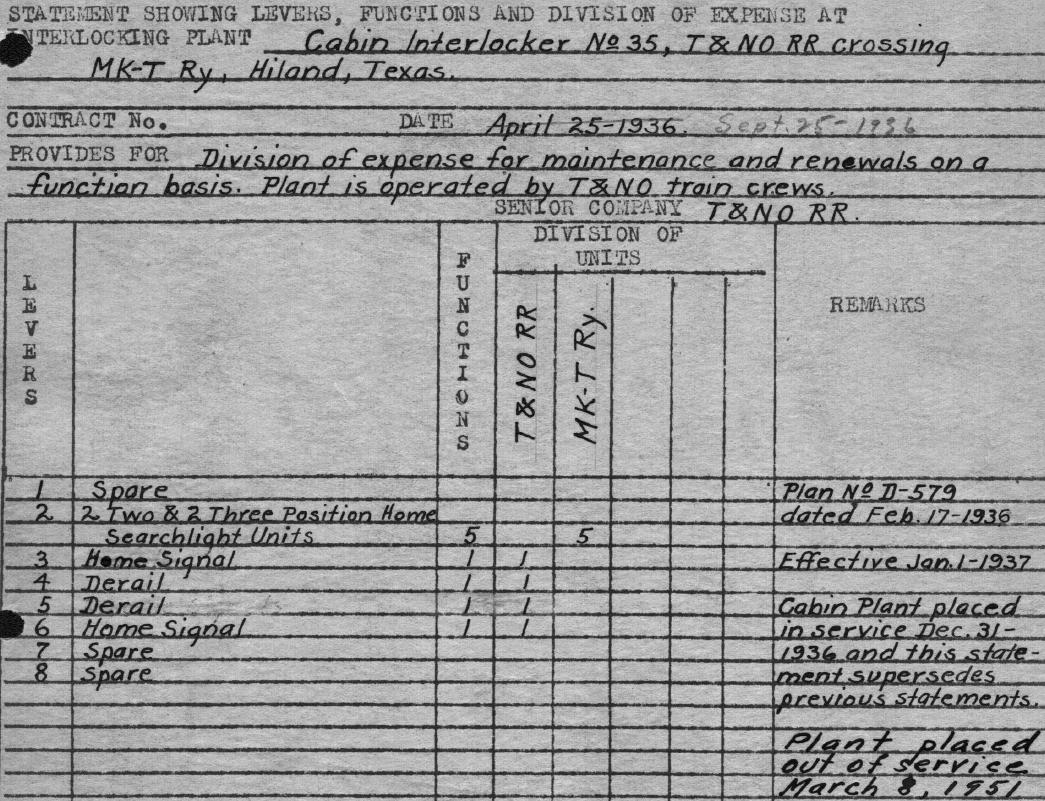 STATEMENT SHOWING LEVERS, FUNCTIONS AND DIVISION OF EXPENSE AT
INTERLOCKING PLANT Cabin Interlocker Nº 35, T&NO RR crossing
MK-T Ry, Hiland, Texas.
CONTRACT No. DATE April 25-1936. Sept. 25-1936
PROVIDES FOR Division of expense for maintenance and renewals on a
function basis. Plant is operated by T&NO train crews.
SENIOR COMPANY T&NO RR.
LEVERS FUNCTIONS DIVISION OF
UNITS
T&NO RR MK-T Ry. REMARKS
1 Spare Plan Nº D-579
2 2 Two & 2 Three Position Home dated Feb. 17-1936
Searchlight Units 5 5
3 Home Signal 1 1 Effective Jan. 1-1937
4 Derail 1 1
5 Derail 1 1 Cabin Plant placed
6 Home Signal 1 1 in service Dec. 31-
7 Spare 1936 and this state-
8 Spare ment supersedes
previous statements.
Plant placed
out of service
March 8, 1951